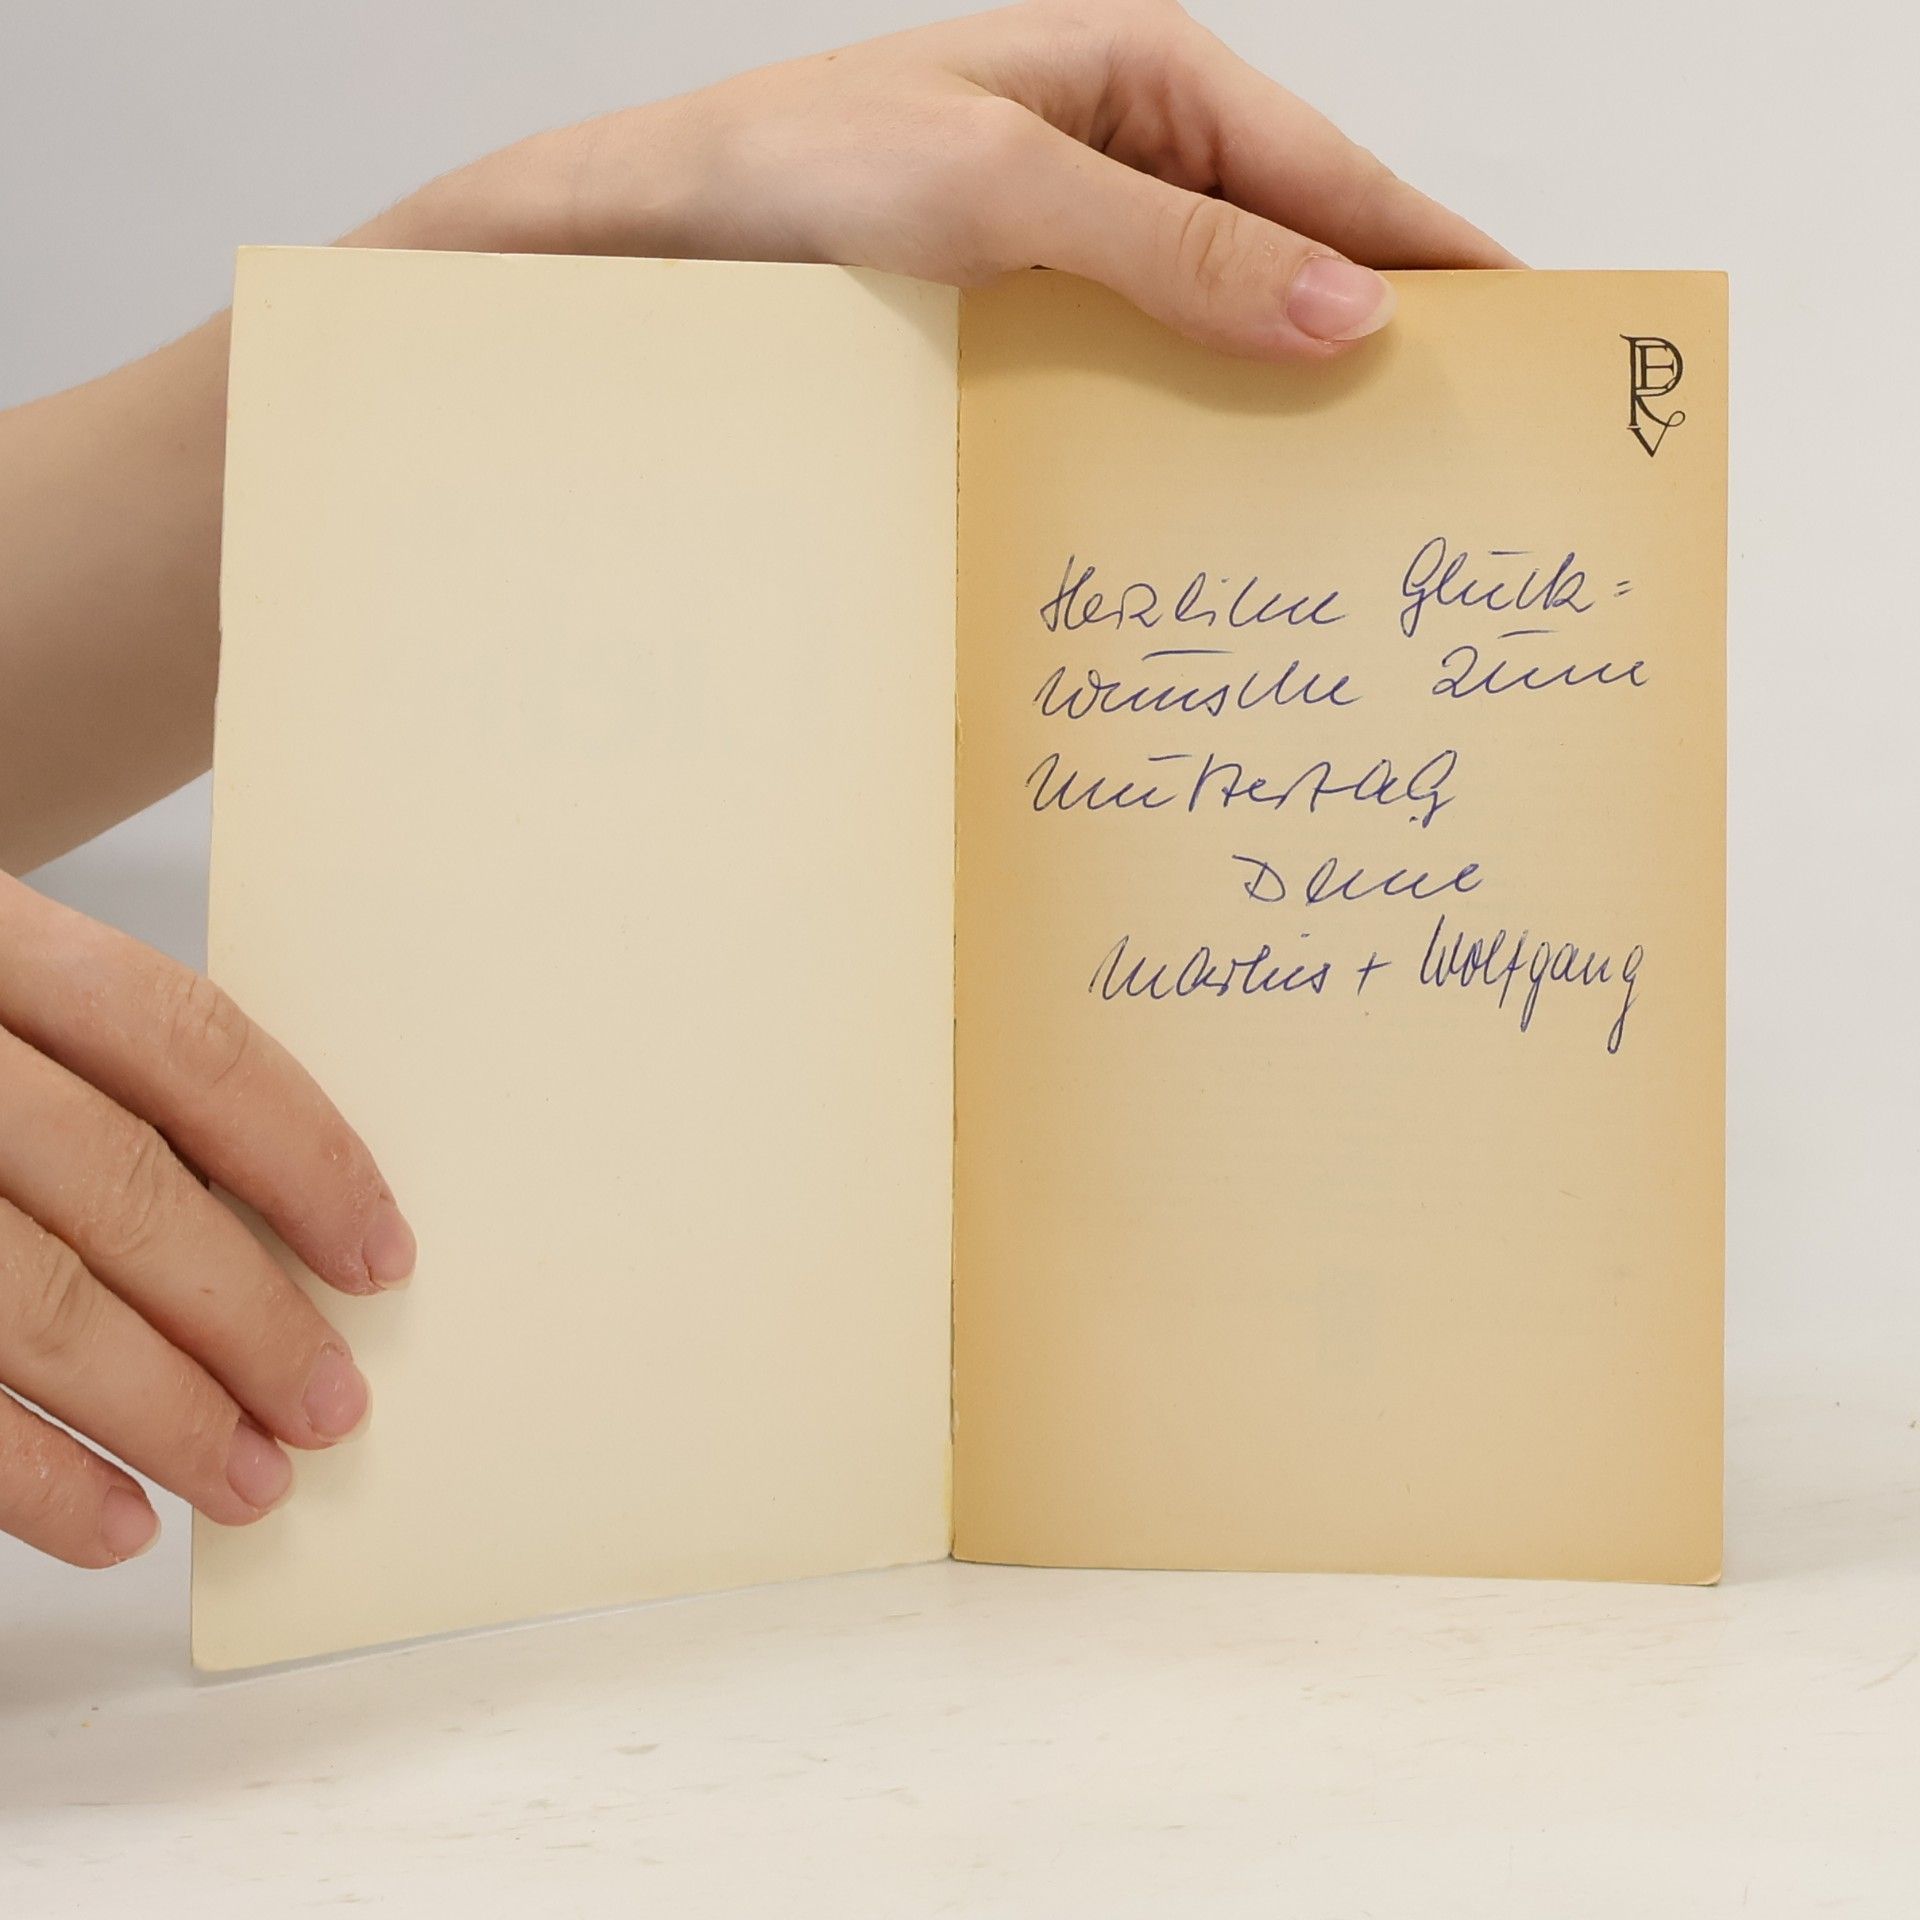 PERV
Herzliche Glück=
wünsche zum
Muttertag
Deine
+ Wolfgang